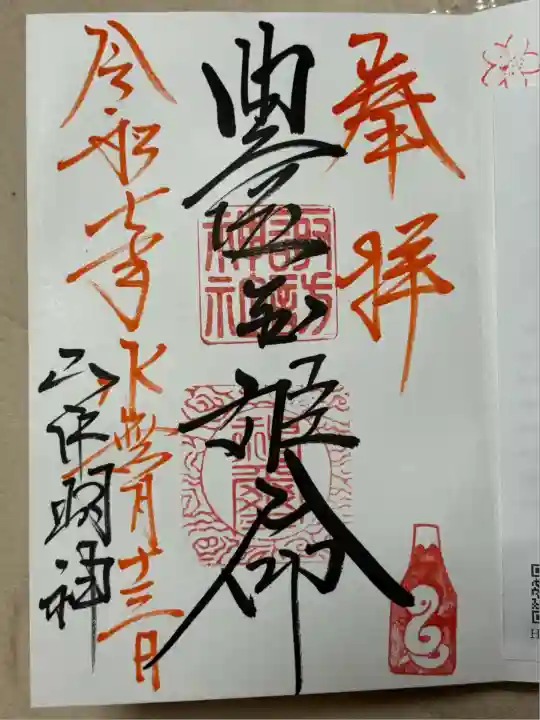 奉拝
豊玉姫命
諏訪
神社
令和七年水無月十三日
明神